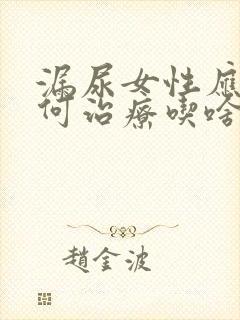 漏尿女性應
何治療喫啥
趙金波